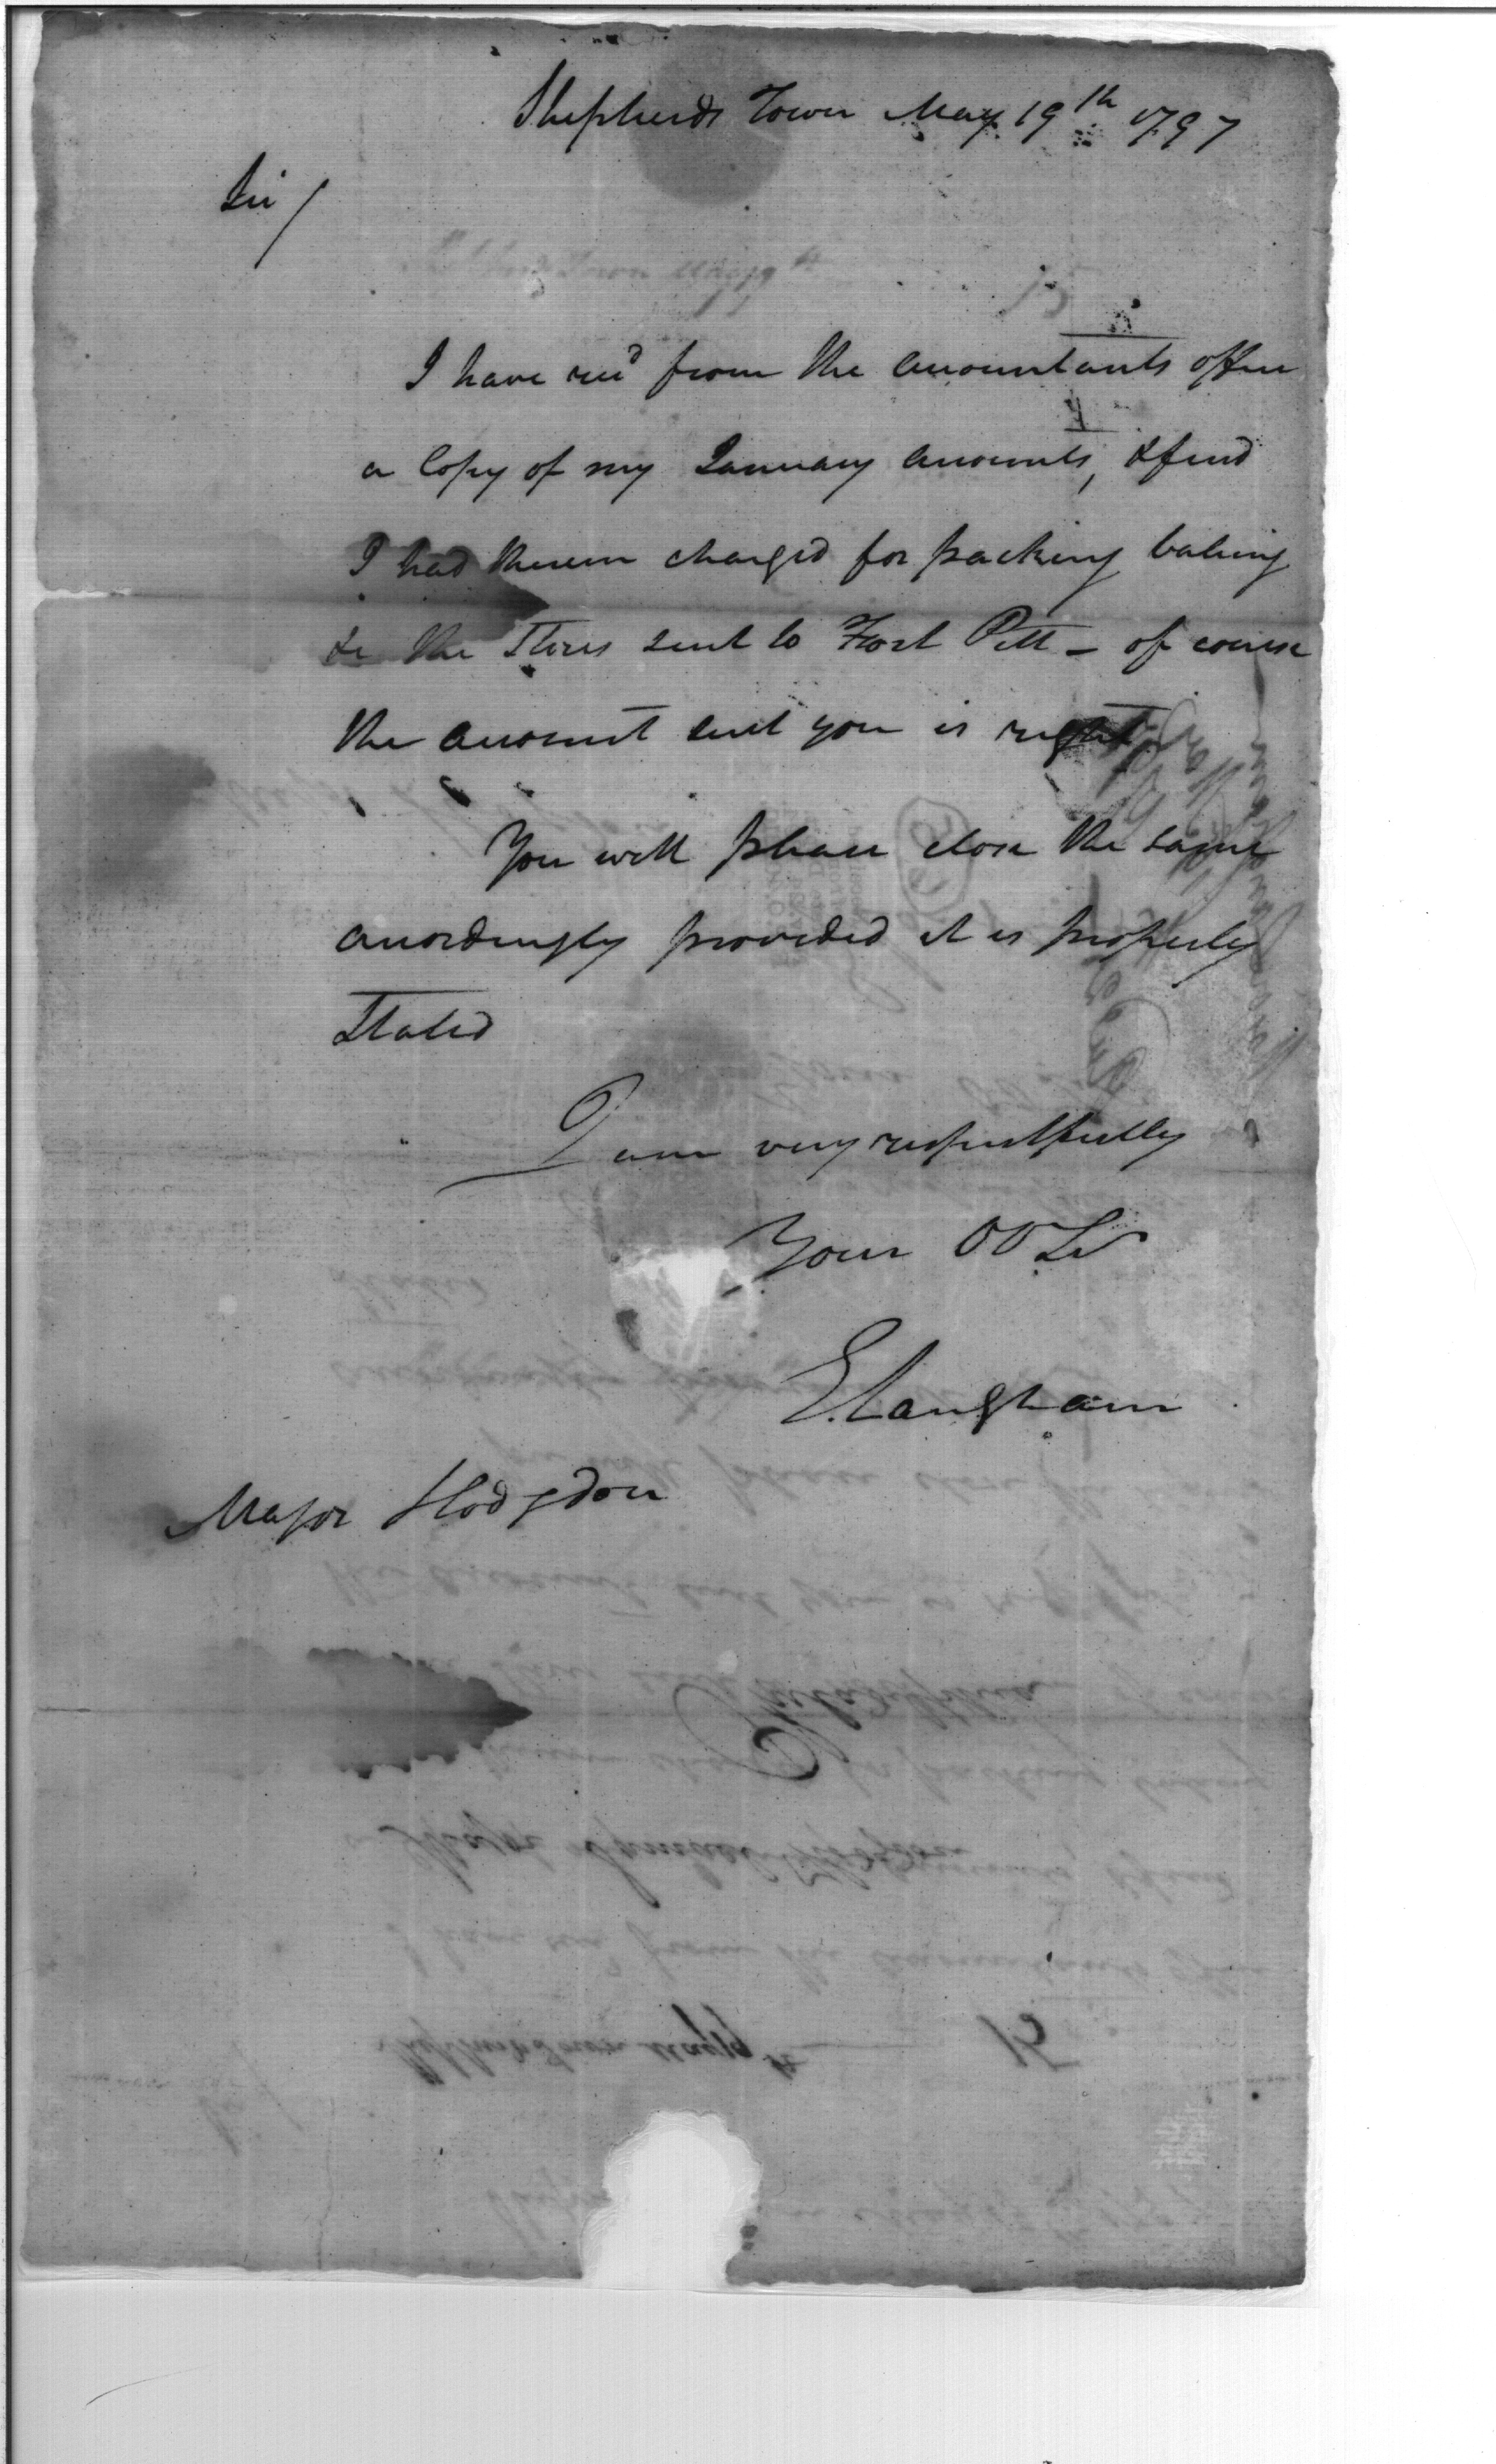 Shepherds Town May 19th 1797
Sir/
I have recd from the accountants office
a Copy of my January accounts, & find
I had therein charged for packing baling
&c the Stores sent to Fort Pitt – of course
the account sent you is right.
You will please close the same
accordingly provided it is properly
Stated
I am very respectfully
Your OO St
E. Langham
Major Hodgdon
Philadelphia
Major Samuel Hodgdon
Shepherds Town May 19th
15